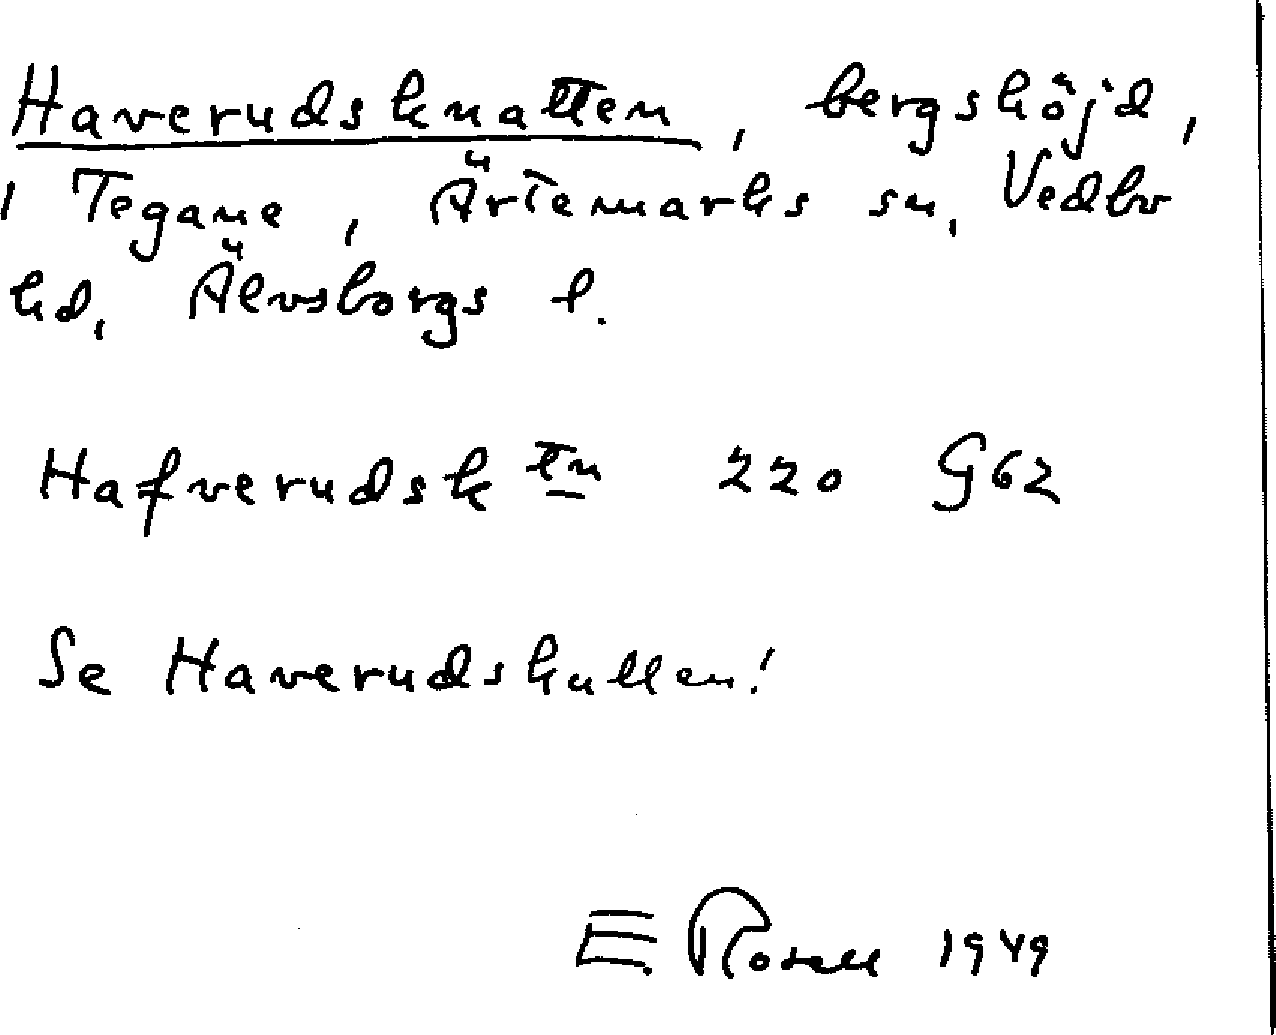 Haverudsknatten, bergshöjd,
i Tegane, Ärtemarks sn, Vedbo
hd, Älvsborgs l.
Hafverudsk tn 220 G62
Se Haverudskullen!
E Rosell 1949